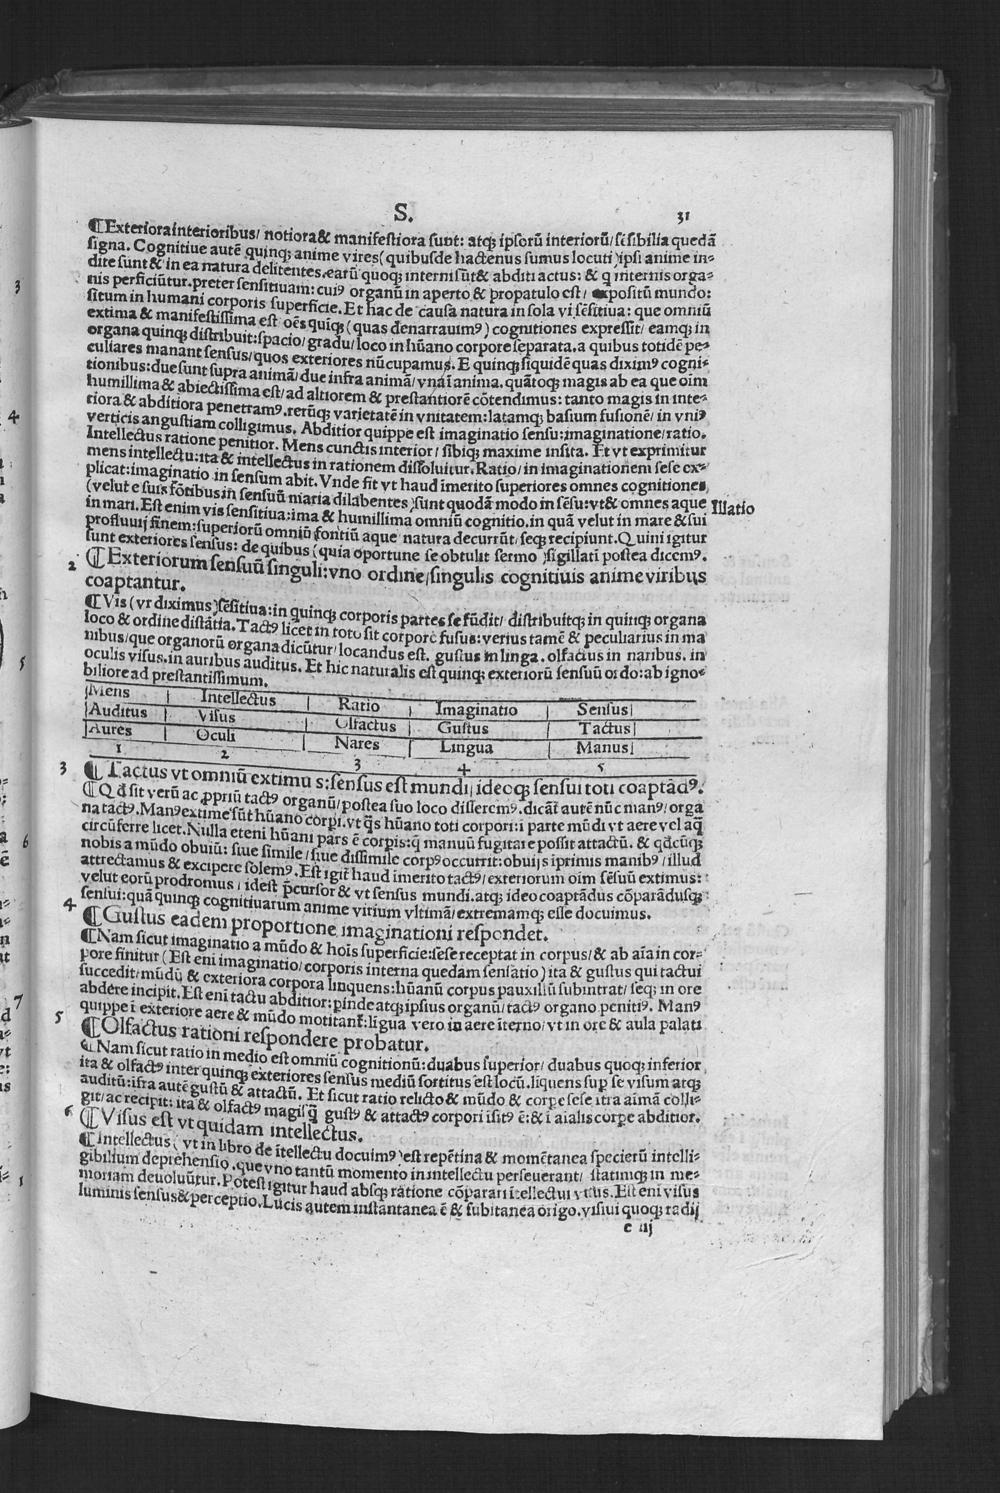 S. 31
¶Exteriora interioribus/ notiora & manifestiora sunt: atqȝ ipsorū interiorū/ sēsibilia quedā
signa. Cognitiue autē quinqȝ anime vires (quibusde hactenus sumus locuti) ipsi anime in-
dite sunt & in ea natura delitentes. earū quoqȝ interni sūt & abditi actus: & q internis orga-
nis perficiūtur. preter sensitiuam: cuiꝰ organū in aperto & propatulo est/ expositū mundo:
situm in humani corporis superficie. Et hac de causa natura in sola vi sēsitiua: que omniū
extima & manifestissima est oēs quīqȝ (quas denarrauimꝰ) cognitiones expressit/ eamqȝ in
organa quinqȝ distribuit: spacio/ gradu/ loco in hūano corpore separata. a quibus totidē pe-
culiares manant sensus/ quos exteriores nūcupamus. E quinqȝ siquidē quas diximꝰ cogni-
tionibus: due sunt supra animā/ due infra animā/ vna ī anima. quātoqȝ magis ab ea que oīm
humillima & abiectissima est/ ad altiorem & prestantiorē cōtendimus: tanto magis in inte-
riora & abditiora penetramꝰ. rerūqȝ varietatē in vnitatem: latamqȝ basium fusionē/ in vniꝰ
verticis angustiam colligimus. Abditior quippe est imaginatio sensu: imaginatione/ ratio.
Intellectus ratione penitior. Mens cunctis interior/ sibiqȝ maxime insita. Et vt exprimitur
mens intellectu: ita & intellectus in rationem dissoluitur. Ratio/ in imaginationem sese ex-
plicat: imaginatio in sensum abit. Vnde fit vt haud īmerito superiores omnes cognitiones
(velut e suis fōtibus in sensuū maria dilabentes) sunt quodā modo in sēsu: vt & omnes aque
in mari. Est enim vis sensitiua: ima & humillima omniū cognitio. in quā velut in mare & sui
profluuij finem: superiorū omniū fontiū aque natura decurrūt/ seqȝ recipiunt. Quini igitur
sunt exteriores sensus: de quibus (quia oportune se obtulit sermo) sigillati postea dicemꝰ.
Illatio
2 ¶Exteriorum sensuū singuli: vno ordine/ singulis cognitiuis anime viribus
coaptantur.
¶Vis (vt diximus) sēsitiua: in quinqȝ corporis partes se fūdit/ distribuitqȝ in quinqȝ organa
loco & ordine distātia. Tactꝰ licet in toto sit corpore fusus: verius tamē & peculiarius in ma
nibus/ que organorū organa dicūtur/ locandus est. gustus in linga. olfactus in naribus. in
oculis visus. in auribus auditus. Et hic naturalis est quinqȝ exteriorū sensuū ordo: ab igno-
biliore ad prestantissimum.
Mens | Intellectus | Ratio | Imaginatio | Sensus
Auditus | Visus | Olfactus | Gustus | Tactus
Aures | Oculi | Nares | Lingua | Manus
1 2 3 4 5
3 ¶Tactus vt omniū extimus: sensus est mundi/ ideoqȝ sensui toti coaptādꝰ.
¶Qd sit verū ac ꝓpriū tactꝰ organū/ postea suo loco disseremꝰ. dicāt autē nūc manꝰ/ orga
na tactꝰ. Manꝰ extime sūt hūano corpi. vt q̄s hūano toti corpori: ī parte mūdi vt aere vel aq̄
circūferre licet. Nulla eteni hūani pars ē corpis: q̄ manuū fugitare possit attactū. & qdcūqȝ
nobis a mūdo obuiū: siue simile/ siue dissimile corpꝰ occurrit: obuijs iprimis manibꝰ/ illud
attrectamus & excipere solemꝰ. Est igit haud īmerito tactꝰ/ exteriorum oīm sēsuū extimus:
velut eorū prodromus/ idest p̄cursor & vt sensus mundi. atqȝ ideo coaptādus cōparādusqȝ
sensui: quā quinqȝ cognitiuarum anime virium vltimā/ extremamqȝ esse docuimus.
4 ¶Gustus eadem proportione imaginationi respondet.
¶Nam sicut imaginatio a mūdo & hoīs superficie: sese receptat in corpus/ & ab aīa in cor-
pore finitur (Est eni imaginatio/ corporis interna quedam sensatio) ita & gustus qui tactui
succedit/ mūdū & exteriora corpora linquens: hūanū corpus pauxillū subintrat/ seqȝ in ore
abdere incipit. Est eni tactu abditior: pīnde atqȝ ipsius organū/ tactꝰ organo penitiꝰ. Manꝰ
quippe ī exteriore aere & mūdo motitant: līgua vero in aere īterno/ vt in ore & aula palati
5 ¶Olfactus rationi respondere probatur.
¶Nam sicut ratio in medio est omniū cognitionū: duabus superior/ duabus quoqȝ inferior
ita & olfactꝰ inter quinqȝ exteriores sensus mediū sortitus est locū. liquens sup se visum atqȝ
auditū: ifra autē gustū & attactū. Et sicut ratio relicto & mūdo & corpe sese itra aīmā colli-
git/ ac recipit: ita & olfactꝰ magis q̄ gustꝰ & attactꝰ corpori īsitꝰ ē: & ī aīalis corpe abditior.
6 ¶Visus est vt quidam intellectus.
¶Intellectus (vt in libro de ītellectu docuimꝰ) est repētina & momētanea specierū intelli-
gibilium deprehensio. que vno tantū momento in intellectu perseuerant/ statimqȝ in me-
moriam deuoluūtur. Potest igitur haud absqȝ ratione cōparari ītellectui visus. Est eni visus
luminis sensus & perceptio. Lucis autem instantanea ē & subitanea origo. visiui quoqȝ radij
e iij